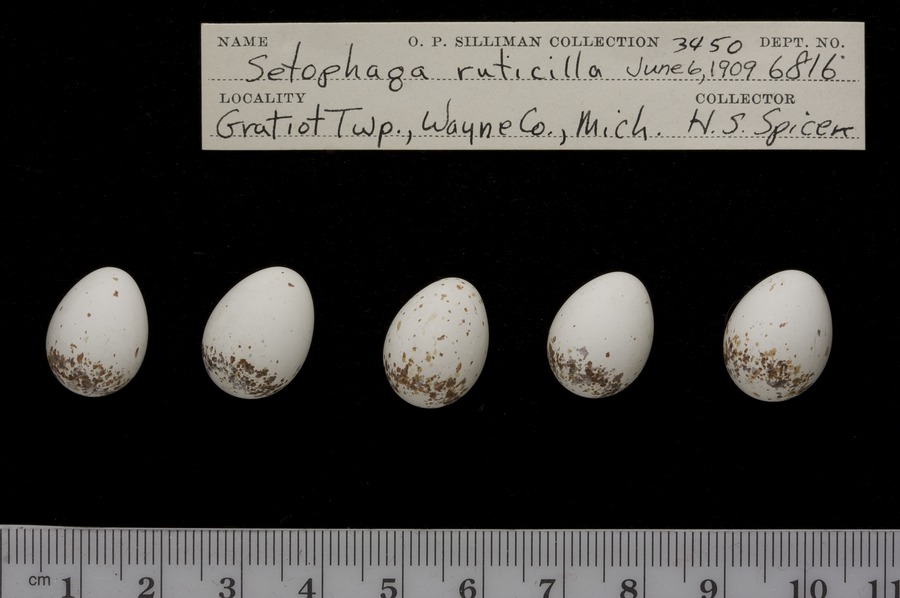 NAME O. P. SILLIMAN COLLECTION 3450 DEPT. NO.
Setophaga ruticilla June 6, 1909 6816
LOCALITY COLLECTOR
Gratiot Twp., Wayne Co., Mich. H. S. Spicer
cm 1 2 3 4 5 6 7 8 9 10 11